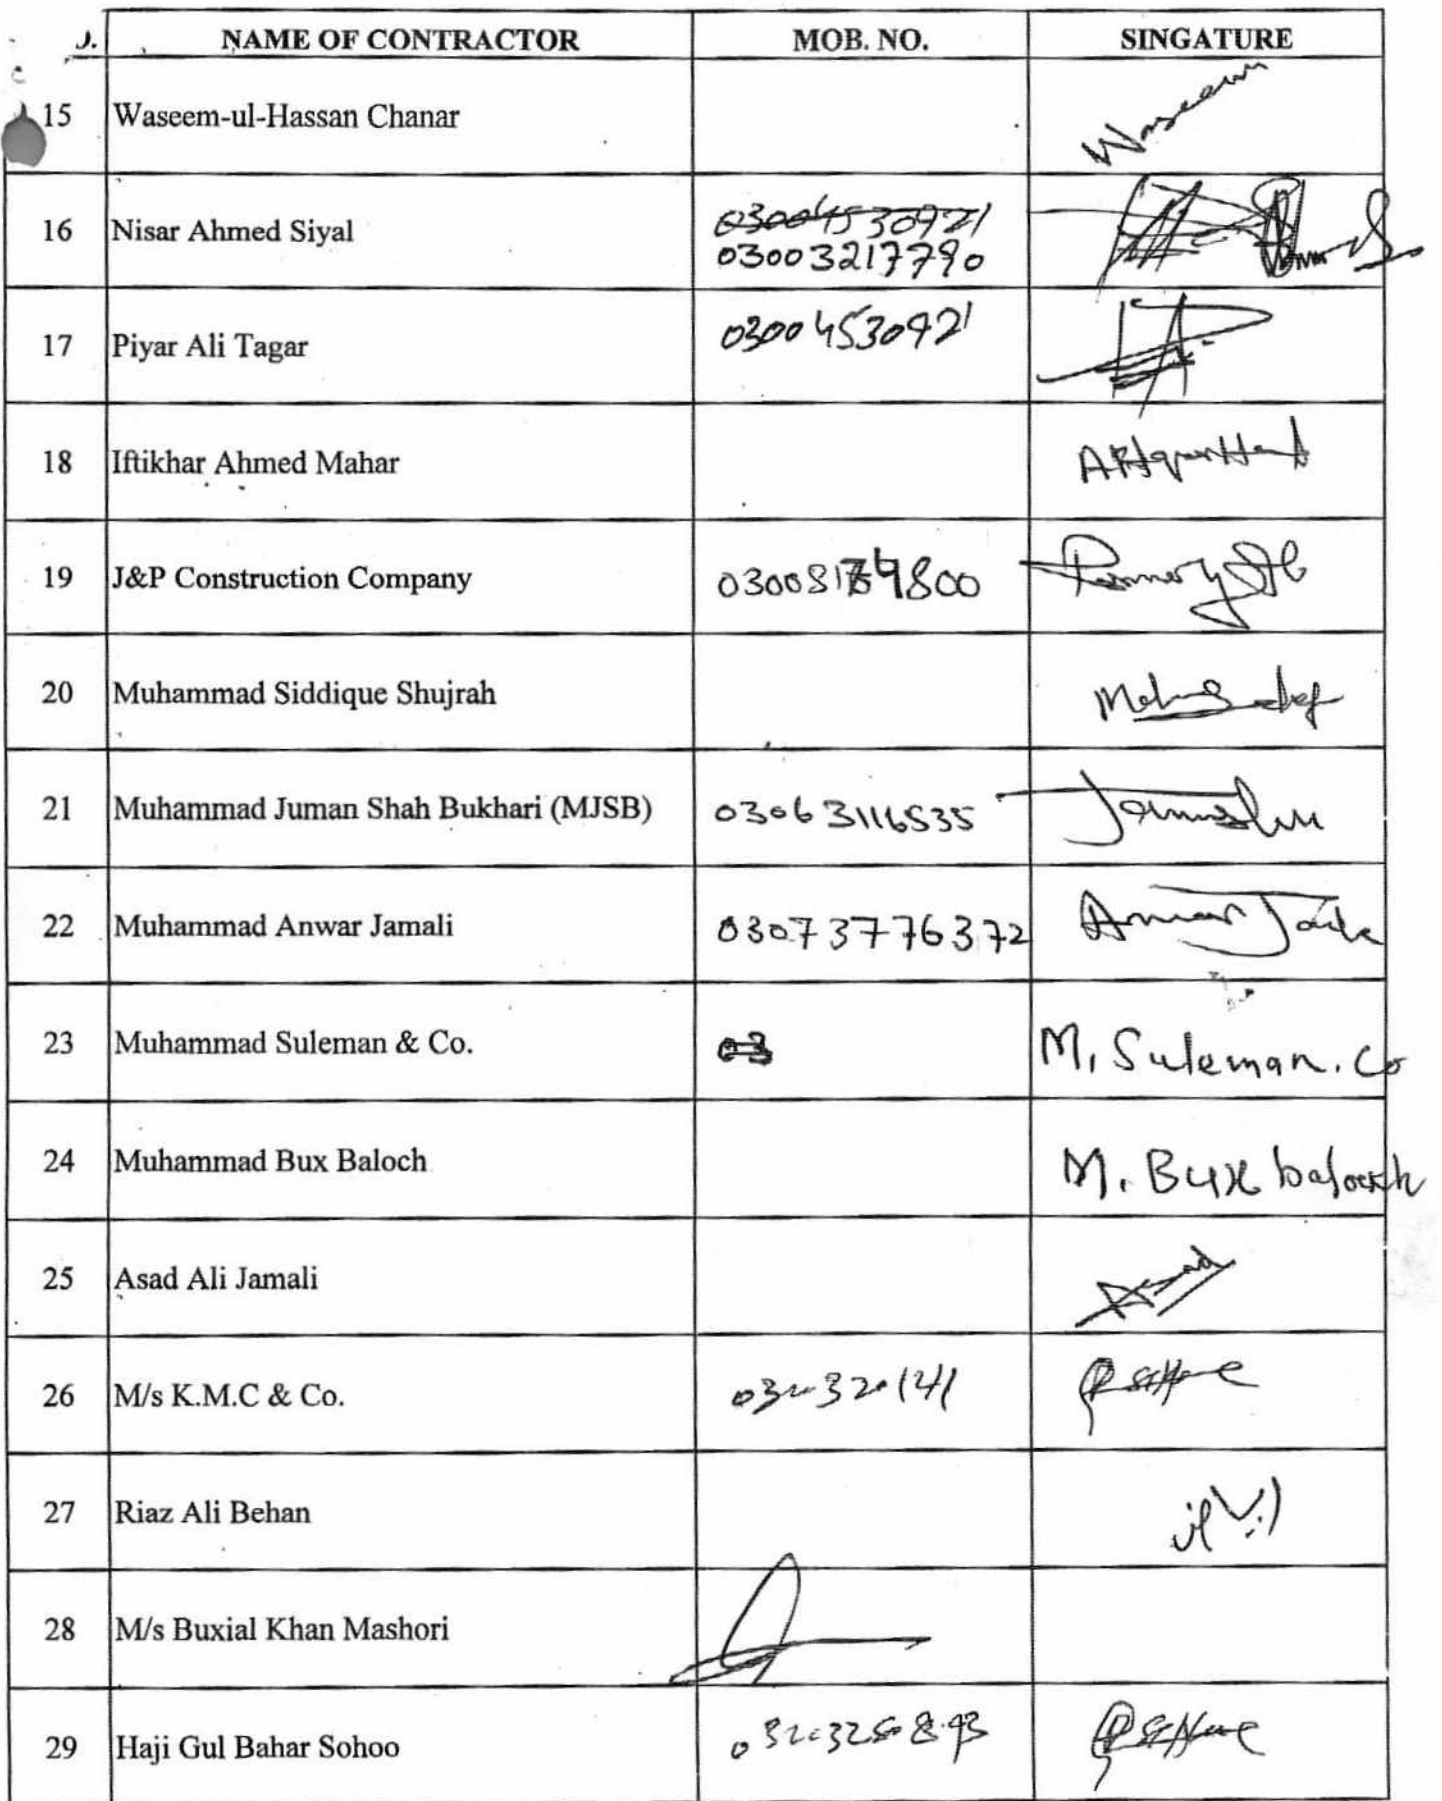 NAME OF CONTRACTOR MOB. NO. SINGATURE
15 Waseem-ul-Hassan Chanar Waseem
16 Nisar Ahmed Siyal 03004530921
03003217790
17 Piyar Ali Tagar 03004530921
18 Iftikhar Ahmed Mahar
19 J&P Construction Company
20 Muhammad Siddique Shujrah
21 Muhammad Juman Shah Bukhari (MJSB) 03063116535
22 Muhammad Anwar Jamali 03073776372 Anwar
23 Muhammad Suleman & Co. 03 M. Suleman. Co
24 Muhammad Bux Baloch M. Bux baloch
25 Asad Ali Jamali Asad
26 M/s K.M.C & Co.
27 Riaz Ali Behan
28 M/s Buxial Khan Mashori
29 Haji Gul Bahar Sohoo